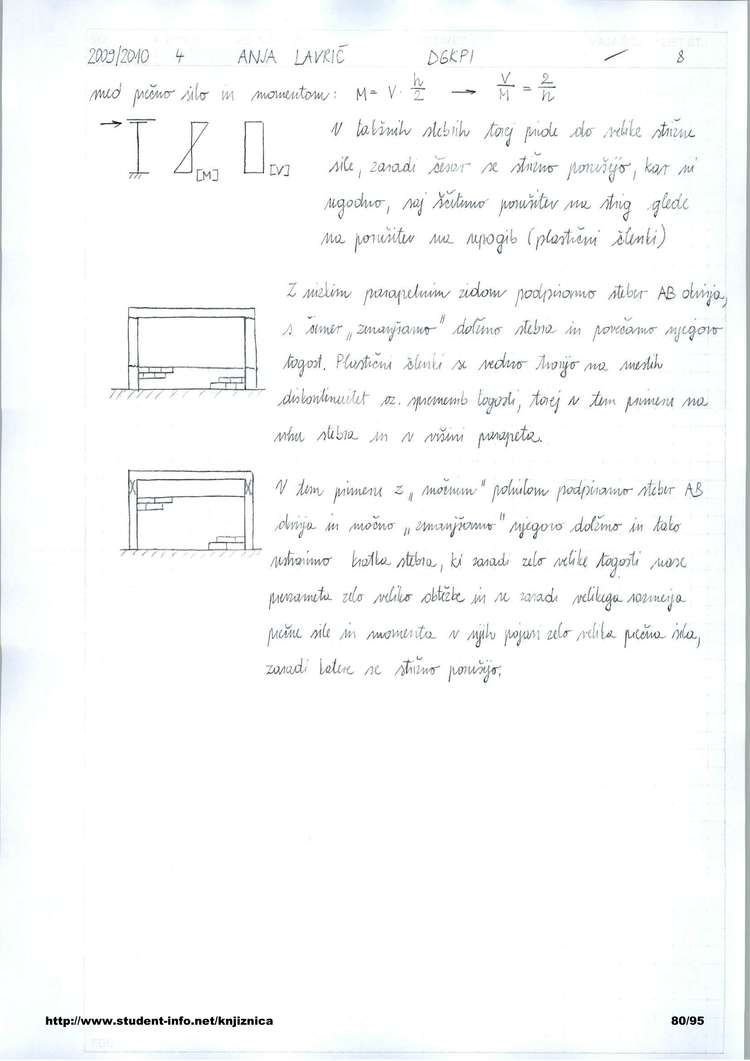 2009/2010 4 ANJA LAVRIČ DGKPI 8
med prečno silo in momentom: M = V · h/2 → V/M = 2/h
[M] [V]
V takšnih stebrih torej pride do velike strižne
sile, zaradi česar se strižno porušijo, kar ni
ugodno, saj ščitimo porušitev na strig glede
na porušitev na upogib (plastični členki)
Z nizkim parapetnim zidom podpiramo steber AB okvirja,
s čimer „zmanjšamo" dolžino stebra in povečamo njegovo
togost. Plastični členki se vedno tvorijo na mestih
diskontinuitet oz. sprememb togosti, torej v tem primeru na
vrhu stebra in v višini parapeta.
V tem primeru z „močnim" polnilom podpiramo steber AB
okvirja in močno „zmanjšamo" njegovo dolžino in tako
ustvarimo kratka stebra, ki zaradi zelo velike togosti nase
prevzameta zelo veliko obtežbe in se zaradi velikega razmerja
prečne sile in momenta v njih pojavi zelo velika prečna sila,
zaradi katere se strižno porušijo.
http://www.student-info.net/knjiznica 80/95